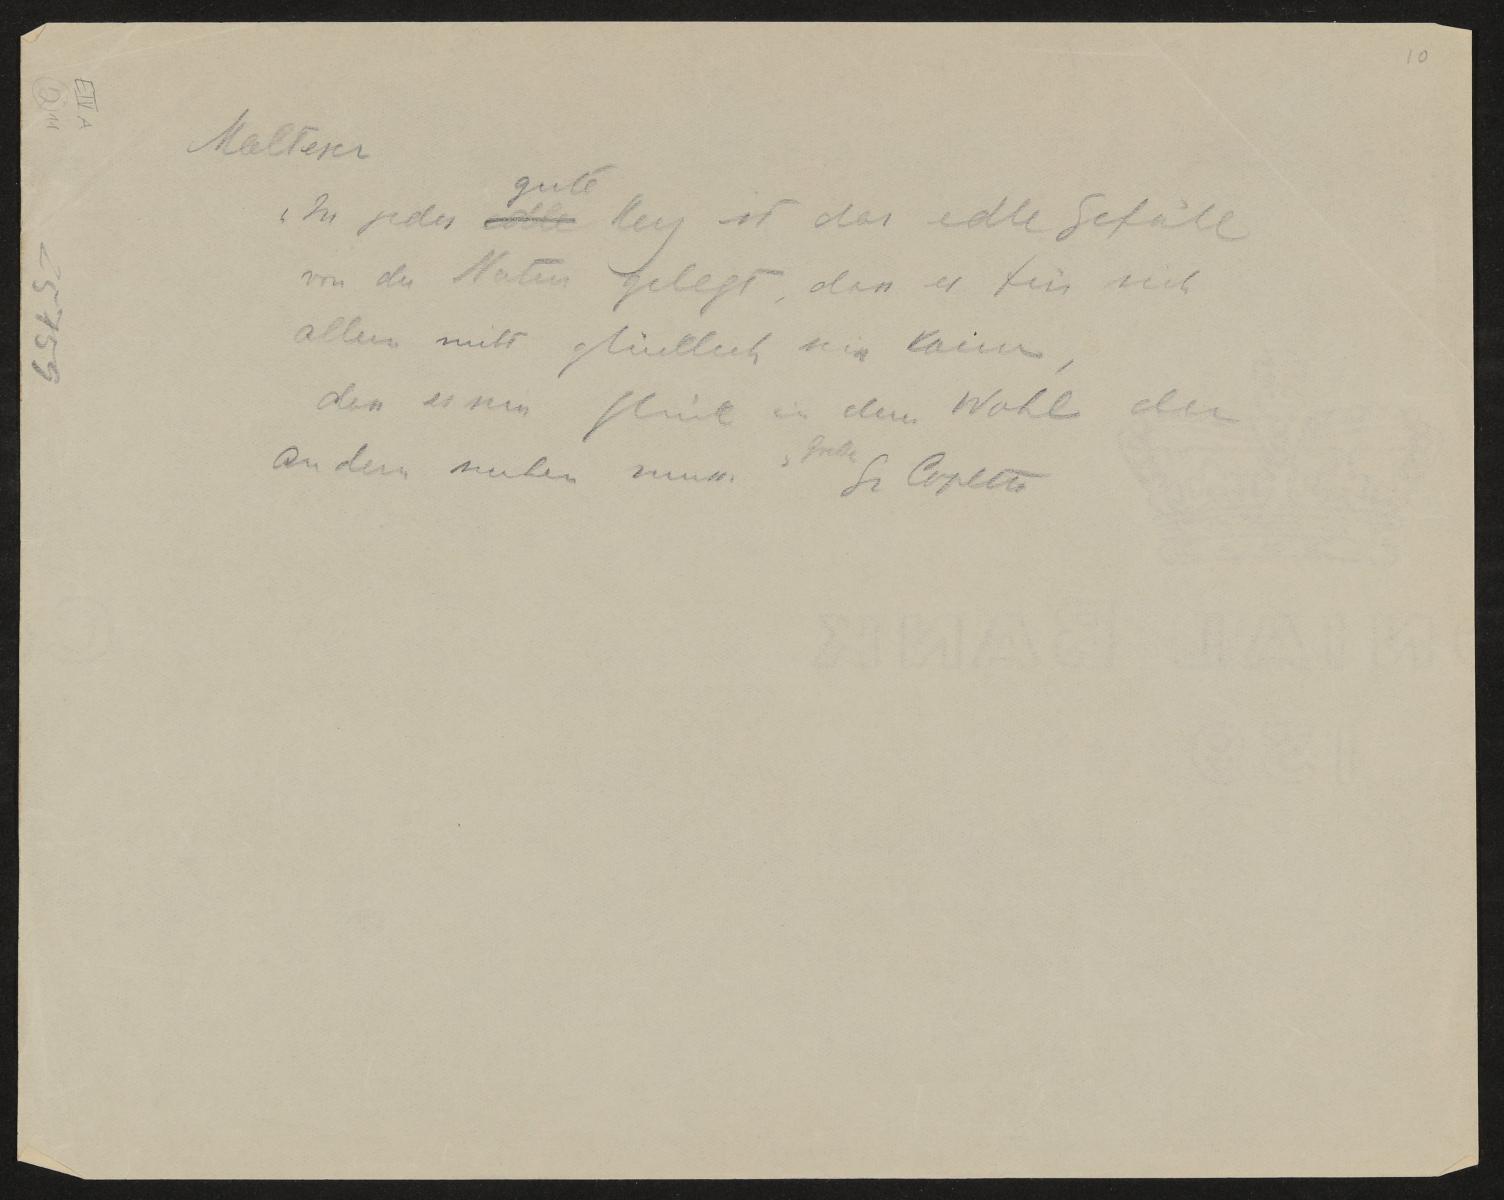 10
E IV A
25759
Malteser
gute
„In jedes edle Herz ist das edle Gefühl
von der Natur gelegt, dass es für sich
allein nicht glücklich sein kann,
dass es sein Glück in dem Wohl der
andern suchen muss." Goethe
Gr Cophta
NIAL BANK